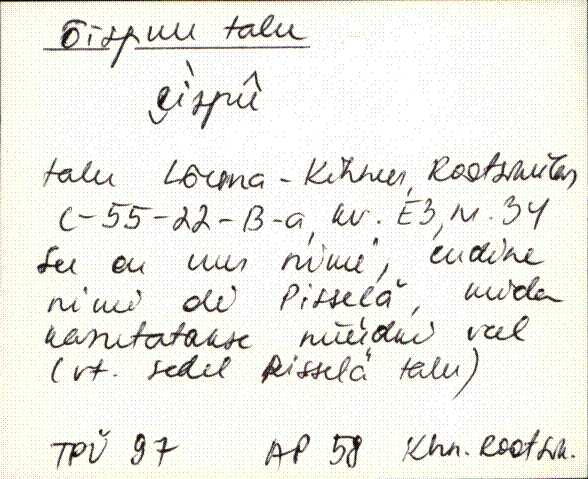 Õispuu talu
e̮ìspū̂
talu Lõuna-Kihnus, Rootsiküläs
C-55-22-B-a, kv. E3, nr. 34
See on uus nimi, endine
nimi oli Pisselä, mida
kasutatakse nüüdki veel
(vt. sedel Pisselä talu)
TPÜ 97 AP 58 Khn. Rootsik.